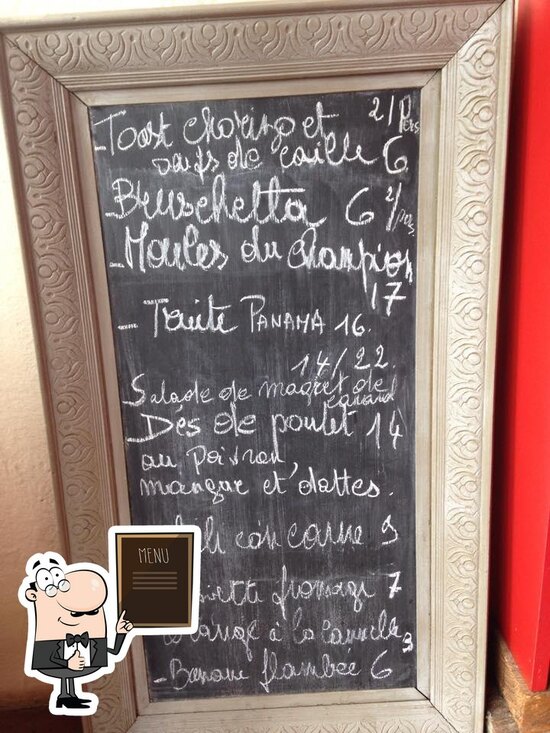 - Toast chorizo et 2/Pers
oeufs de caille 6
- Bruschetta 6 2/pers
- Moules du champion
17
- Truite PANAMA 16.
14/22.
Salade de magret de
canard
- Dés de poulet 14
au Poivron,
mangue et dattes.
con carne 9
fromage 7
à la cannelle 3
- Banane flambée 6
MENU